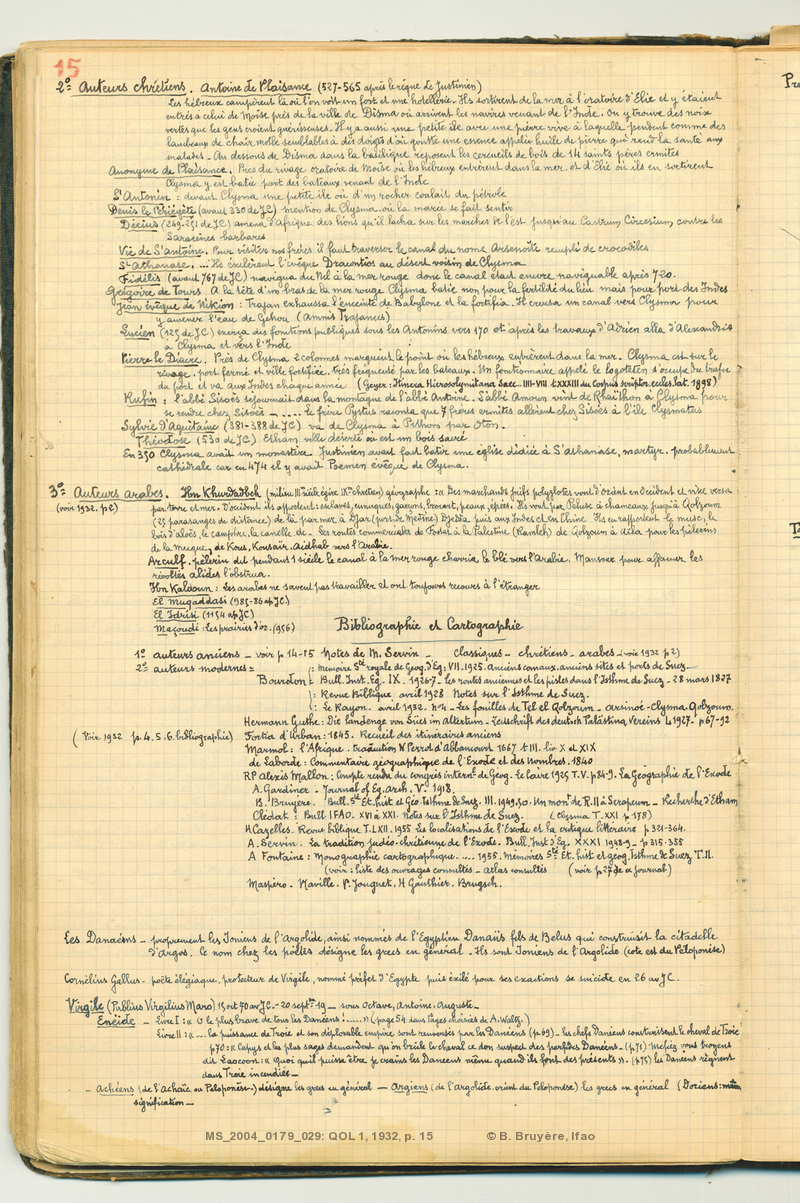 15
2º Auteurs chrétiens. Antoine de Plaisance (527-565 après le règne de Justinien)
Les hébreux campèrent là où l'on voit un fort et une hotellerie. Ils sortirent de la mer à l'oratoire d'Elie et y étaient
entrés a celui de Moïse près de la ville de Disma où arrivent les navires venant de l'Inde. On y trouve des noix
vertes que les gens croient guérisseuses. Il y a aussi une petite île avec une pierre vive à laquelle pendent comme des
lambeaux de chair molle semblables à des doigts d'où goutte une essence appelée huile de pierre qui rend la santé aux
malades. Au dessous de Disma dans la basilique reposent les cercueils de bois de 14 saints pères ermites
Anonyme de Plaisance. Près du rivage oratoire de Moïse où les hébreux entrèrent dans la mer. et d'Elie où ils en sortirent
Clysma y est batie port des bateaux venant de l'Inde
St Antonin : devant Clysma une petite île où d'un rocher coulait du pétrole
Denis le Périégète (avant 330 de JC) mention de Clysma. où la marée se fait sentir
Décius (249-251 de JC) amena d'Afrique des lions qu'il lacha sur les marches de l'est jusqu'au Castrum Circesium, contre les
Saracènes barbares
Vie de St Antoine. Pour visiter nos frères il faut traverser le canal du nome Arsenoïte rempli de crocodiles
St Athanase. ... Ils exilèrent l'évêque Dracontios au désert voisin de Clysma
Fidélis (avant 767 de JC) navigua du Nil à la mer rouge donc le canal était encore navigable après 720.
Grégoire de Tours A la tête d'un bras de la mer rouge Clysma batie non pour la fertilité du lieu mais pour port des Indes
Jean évêque de Nikiou : Trajan exhaussa l'enceinte de Babylone et la fortifia. Il creusa un canal vers Clysma pour
y amener l'eau de Gehou (Amnis Trajanus)
Lucien (125 de JC) exerça des fonctions publiques sous les Antonins vers 170 et après les travaux d'Adrien alla d'Alexandrie
à Clysma et vers l'Inde
Pierre le Diacre. Près de Clysma 2 colonnes marquent le point où les hébreux entrèrent dans la mer. Clysma est sur le
rivage. port fermé et ville fortifiée. très fréquenté par les bateaux. Un fonctionnaire appelé le logotèten s'occupe du trafic
du port et va aux Indes chaque année (Geyer : Itinera Hierosolymitana Saec. IIII-VIII t XXXIII du Corpus scriptor. eccles. lat. 1898)
Rufin : l'abbé Sisoès sejournait dans la montagne de l'abbé Antoine. L'abbé Amoun vint de Rhaithon à Clysma pour
se rendre chez Sisoès - ..... le frère Pystus raconta que 7 frères ermites allèrent chez Sisoès à l'île Clysmatus
Sylvie d'Aquitaine (381-388 de JC) va de Clysma à Pithom par Oton.
Théodose (530 de JC) Etham ville déserte où est un bois sacré
En 350 Clysma avait un monastère. Justinien avait fait batir une église dédiée à St Athanase, martyr. probablement
cathédrale car en 474 il y avait Poemen évêque de Clysma.
3º Auteurs arabes. Ibn Khurdadbeh (milieu IIIe siècle égire IXe chrétien) géographe : « Des marchands juifs polyglotes vont d'orient en occident et vice versa
(voir 1932. p 2) par terre et mer. D'occident ils apportent : esclaves, eunuques, garçons, brocart, peaux, épées. Ils vont par Péluse à chameaux jusqu'à Qolzoum
(25 parasanges de distance) de là par mer à Djar (port de Médine) Djedda puis aux Indes et en Chine. Ils en rapportent le musc, le
bois d'aloès, le camphre, la canelle. etc. Les routes commerciales de Fostat à la Palestine (Ramleh) de Qolzoum à Aila pour les pèlerins
de la Mecque, de Kous, Kousaïr. Aïdhab vers l'Arabie.
Arculf. pèlerin dit pendant 1 siècle le canal à la mer rouge charria le blé vers l'Arabie. Mansour pour affamer les
révoltés alides l'obstrua.
Ibn Kaldoun : Les arabes ne savent pas travailler et ont toujours recours à l'étranger
El Muqaddasi (985-86 ap JC)
El Idrisi (1154 ap JC)
Maçoudi : Les prairies d'or. (956)
Bibliographie et Cartographie
1º auteurs anciens - voir p 14-15 Notes de M. Servin - Classiques - chrétiens - arabes - (voir 1932 p 2)
2º auteurs modernes =
: Mémoire Sté royale de Géog. d'Eg : VII. 1925. Anciens canaux. anciens sites et ports de Suez.
Bourdon : Bull. Inst. Eg. IX. 1926-7. Les routes anciennes et les pistes dans l'Isthme de Suez - 28 mars 1827
: Revue Biblique avril 1928 Notes sur l'Isthme de Suez.
: Le Rayon. avril 1932. nº 4 - Les fouilles de Tel el Qolzoum - Arsinoé-Clysma-Qolzoum.
Hermann Guthe : Die landenge von Sües im altertum - Zeitschrift des deutsch Palästina Vereins 4 1927 - p 67-92
(Voir 1932 p. 4. 5. 6. bibliographie) Fortia d'Urban : 1845. Recueil des itinéraires anciens
Marmol : l'Afrique. traduction N Perrot d'Abbancourt 1667 t III. liv X et XIX
de Laborde : Commentaire géographique de l'Exode et des Nombres. 1840
RP Alexis Mallon : Compte rendu du congrès internal de Géog. Le Caire 1925 T. V. p 84-9. La Geographie de l'Exode
A. Gardiner - Journal of Eg. arch. V. 1918.
B. Bruyère. Bull. Sté Et. hist et Géo. Isthme de Suez. III. 1949.50. Un mont de R. II à Serapeum - Recherche d'Etham
Clédat : Bull IFAO. XVI à XXI. Notes sur l'Isthme de Suez. (Clysma T. XXI p 178)
H Cazelles. Revue biblique T. LXII. 1955 Les localisations de l'Exode et la critique littéraire p 321-364.
A. Servin. La tradition judéo-chrétienne de l'Exode. Bull. Inst d'Eg. XXXI 1948-9 - p 315-355
A Fontaine : Monographie cartographique. .... 1955. Mémoires Sté Et. hist et géog. Isthme de Suez T. II.
(voir : liste des ouvrages consultés - atlas consultés (voir p 27 de ce journal)
Maspéro - Naville. P. Jouguet, H Gauthier. Brugsch.
Les Danaéens - proprement les Ioniens de l'Argolide, ainsi nommés de l'Egyptien Danaüs fils de Belus qui construisit la citadelle
d'Argos. Ce nom chez les poètes désigne les grecs en général. Ils sont Ioniens de l'Argolide (cote est du Péloponèse)
Cornélius Gallus - poète élégiaque, protecteur de Virgile, nommé préfet d'Egypte puis éxilé pour ses exactions se suicide en 26 av JC.
Virgile (Publius Virgilius Maro) 15 oct 70 av JC. - 20 septre 19 - sous Octave, Antoine. Auguste -
Eneide - Livre I : « O le plus brave de tous les Danéens !..... » (page 54 dans Pages choisies de A. Waltz.)
Livre II : « .... la puissance de Troie et son déplorable empire sont renversés par les Danéens (p 69) - les chefs Danéens construisirent le cheval de Troie
p 70 : « Capys et les plus sages demandent qu'on brûle le cheval ce don suspect des perfides Danéens - (p 71) Méfiez vous troyens
dit Laocoon : « Quoi qu'il puisse être je crains les Danéens même quand ils font des présents ». (p 75) les Danéens règnent
dans Troie incendiée -
- Achéens (de l'Achaïe ou Péloponèse.) désigne les grecs en général - Argiens (de l'Argolide. orient du Peloponèse) les grecs en général (Doriens : même
signification -
MS_2004_0179_029: QOL 1, 1932, p. 15 © B. Bruyère, Ifao